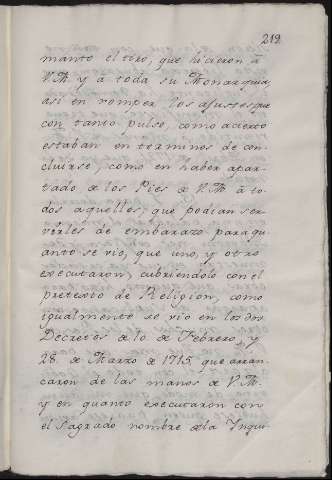 219.
manto el tiro, que hicieron á
V.M. y á toda su Monarquia,
asi en romper los ajustes que
con tanto pulso, como acierto
estaban en terminos de con-
cluirse, como en haber apar-
tado de los Pies de V.M. á to-
dos aquellos, que podian ser-
verles de embarazo para qu-
anto se vio, que uno, y otro
executaron, cubriendolo con el
pretexto de Religion, como
igualmente se vio en los dos
Decretos de 10 de Febrero, y
28 de Marzo de 1715, que arran-
caron de las manos de V.M.
y en quanto executaron con
el Sagrado nombre de la Inqui-